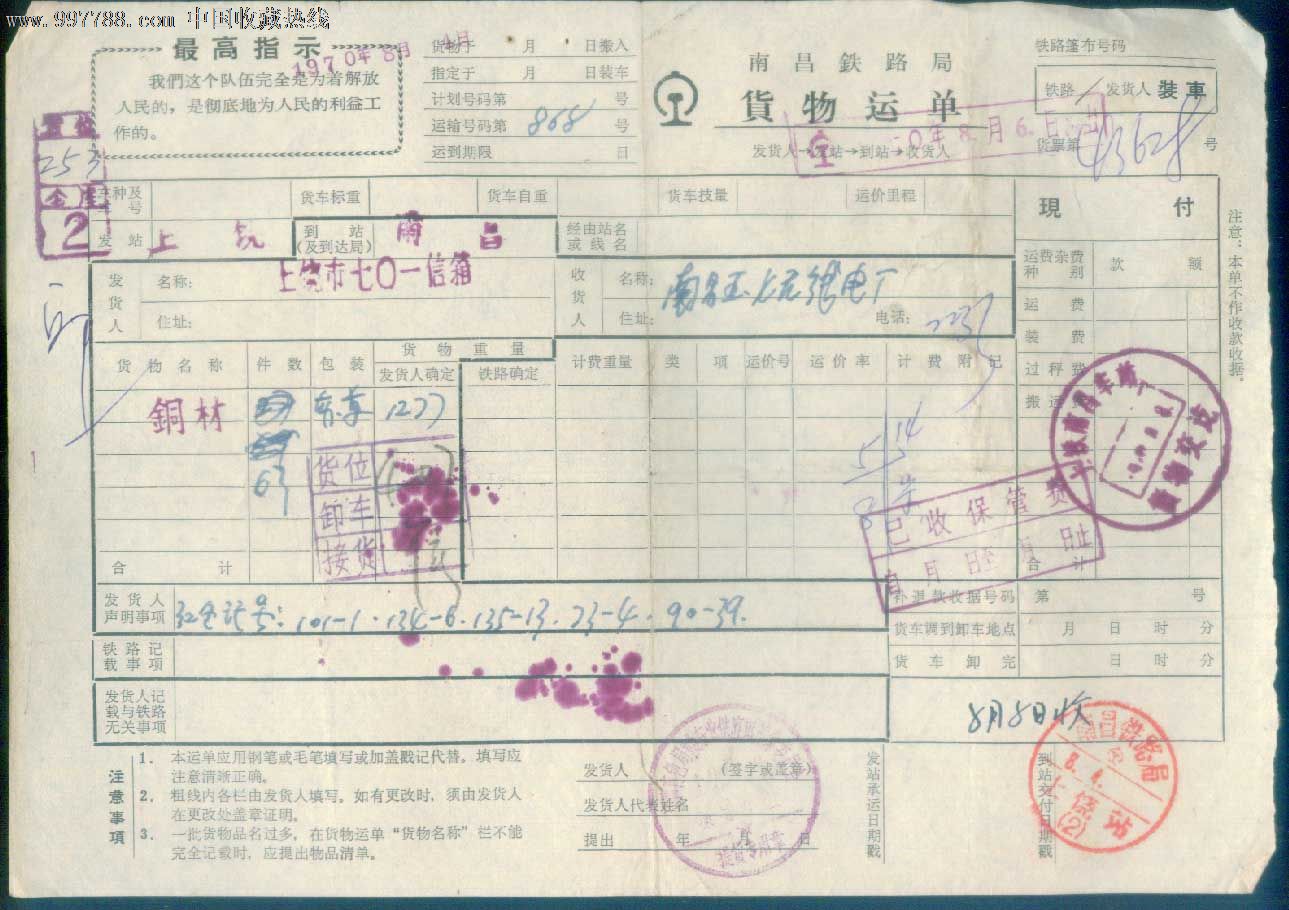 www.997788.com 中国收藏热线
最高指示
我們这个队伍完全是为着解放
人民的，是彻底地为人民的利益工
作的。
1970年8月4日
货物于 月 日搬入
指定于 月 日装车
计划号码第 号
运输号码第 868 号
运到期限 日
南昌鉄路局
貨物运单
发货人→发站→到站→收货人
年8.月6.日
铁路篷布号码
铁路/发货人 装車
货票第 43628 号
253
2
车种及
车号
货车标重
货车自重
货车技量
运价里程
現付
发站 上饶
到站
(及到达局)
南昌
经由站名
或线名
发货人
名称：
上饶市七〇一信箱
住址：
收货人
名称：
住址：
电话：
运费杂费
种别
款额
运费
装费
过秤费
搬运费
注意：本单不作收款收据。
货物名称
件数
包装
货物重量
发货人确定
铁路确定
计费重量
类项
运价号
运价率
计费附记
銅材
1277
63
货位
卸车
接货
已收保管费
自 月 日至 月 日止
合计
合计
发货人
声明事项
101-1.134-6.135-13.23-4.90-39.
补退款收据号码 第 号
货车调到卸车地点 月 日 时 分
货车卸完 日 时 分
铁路记
载事项
发货人记
载与铁路
无关事项
8月8日收
注意事項
1. 本运单应用钢笔或毛笔填写或加盖戳记代替。填写应
注意清晰正确。
2. 粗线内各栏由发货人填写。如有更改时，须由发货人
在更改处盖章证明。
3. 一批货物品名过多，在货物运单“货物名称”栏不能
完全记载时，应提出物品清单。
发货人 (签字或盖章)
发货人代表姓名
提出 年 月 日
发站承运日期戳
到站交付日期戳
南昌铁路局
8.4.
上饶站
(2)